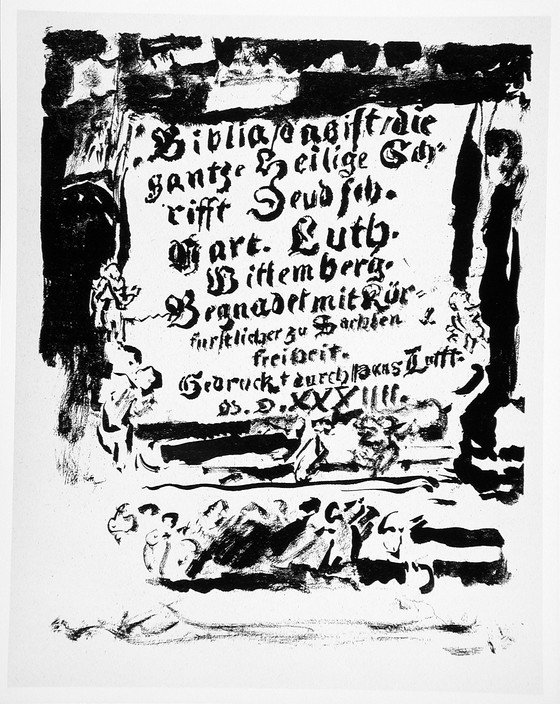 Biblia/das ist/die
gantze Heilige Sch-
rifft Deudsch.
Mart. Luth.
Wittemberg.
Begnadet mit Kör-
fürstlicher zu Sachsen
freiheit.
Gedruckt durch Hans Lufft.
M. D. XXXIIII.